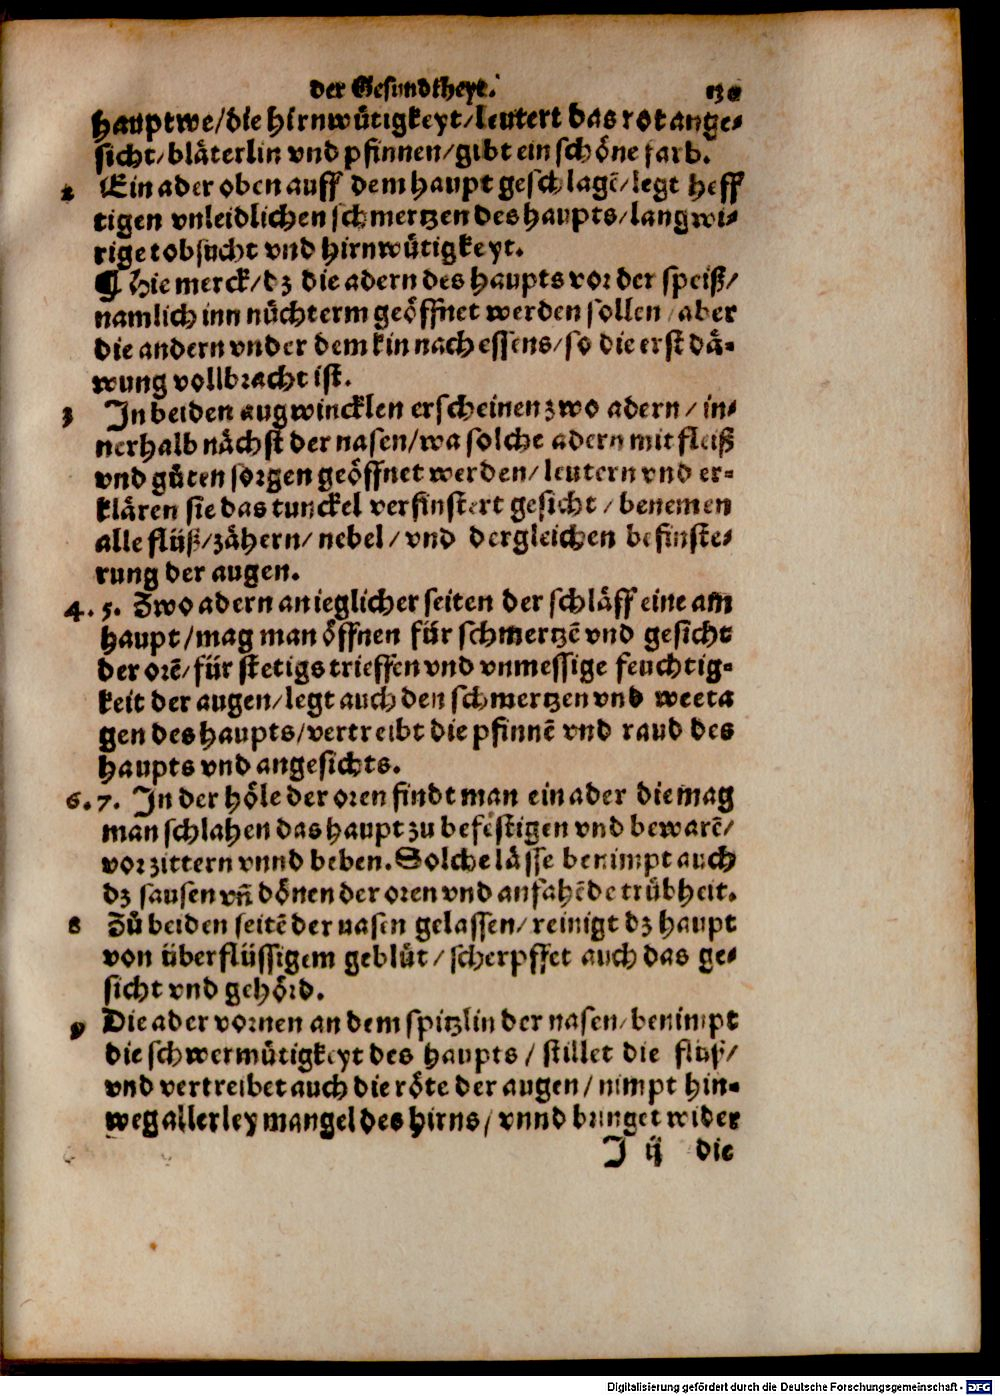 der Gesundtheyt.
hauptwe/die hirnwütigkeyt/leutert das rot ange⸗
sicht/bläterlin vnd pfinnen/gibt ein schöne farb.
2 Ein ader oben auff dem haupt geschlagē/legt heff
tigen vnleidlichen schmertzen des haupts/langwi⸗
rige tobsucht vnd hirnwütigkeyt.
¶ Hie merck/dz die adern des haupts vor der speiß/
namlich inn nüchterm geöffnet werden sollen/aber
die andern vnder dem kin nach essens/so die erst dä⸗
wung vollbracht ist.
3 In beiden augwincklen erscheinen zwo adern/in⸗
nerhalb nächst der nasen/wa solche adern mit fleiß
vnd gůten sorgen geöffnet werden/leutern vnd er⸗
klären sie das tunckel verfinstert gesicht/benemen
alle flüß/zähern/nebel/vnd dergleichen befinste⸗
rung der augen.
4. 5. Zwo adern an ieglicher seiten der schläff eine am
haupt/mag man öffnen für schmertzē vnd gesicht
der orē/für stetigs trieffen vnd vnmessige feuchtig⸗
keit der augen/legt auch den schmertzen vnd weeta
gen des haupts/vertreibt die pfinnē vnd raud des
haupts vnd angesichts.
6. 7. In der höle der oren findt man ein ader die mag
man schlahen das haupt zu befestigen vnd bewarē/
vor zittern vnnd beben. Solche lässe benimpt auch
dz sausen vñ dönen der oren vnd anfahēde trübheit.
8 Zů beiden seitē der nasen gelassen/reinigt dz haupt
von überflüssigem geblůt/scherpffet auch das ge⸗
sicht vnd gehörd.
9 Die ader vornen an dem spitzlin der nasen/benimpt
die schwermütigkeyt des haupts/stillet die flüß/
vnd vertreibet auch die röte der augen/nimpt hin⸗
weg allerley mangel des hirns/vnnd bringet wider
J ij die
Digitalisierung gefördert durch die Deutsche Forschungsgemeinschaft - DFG